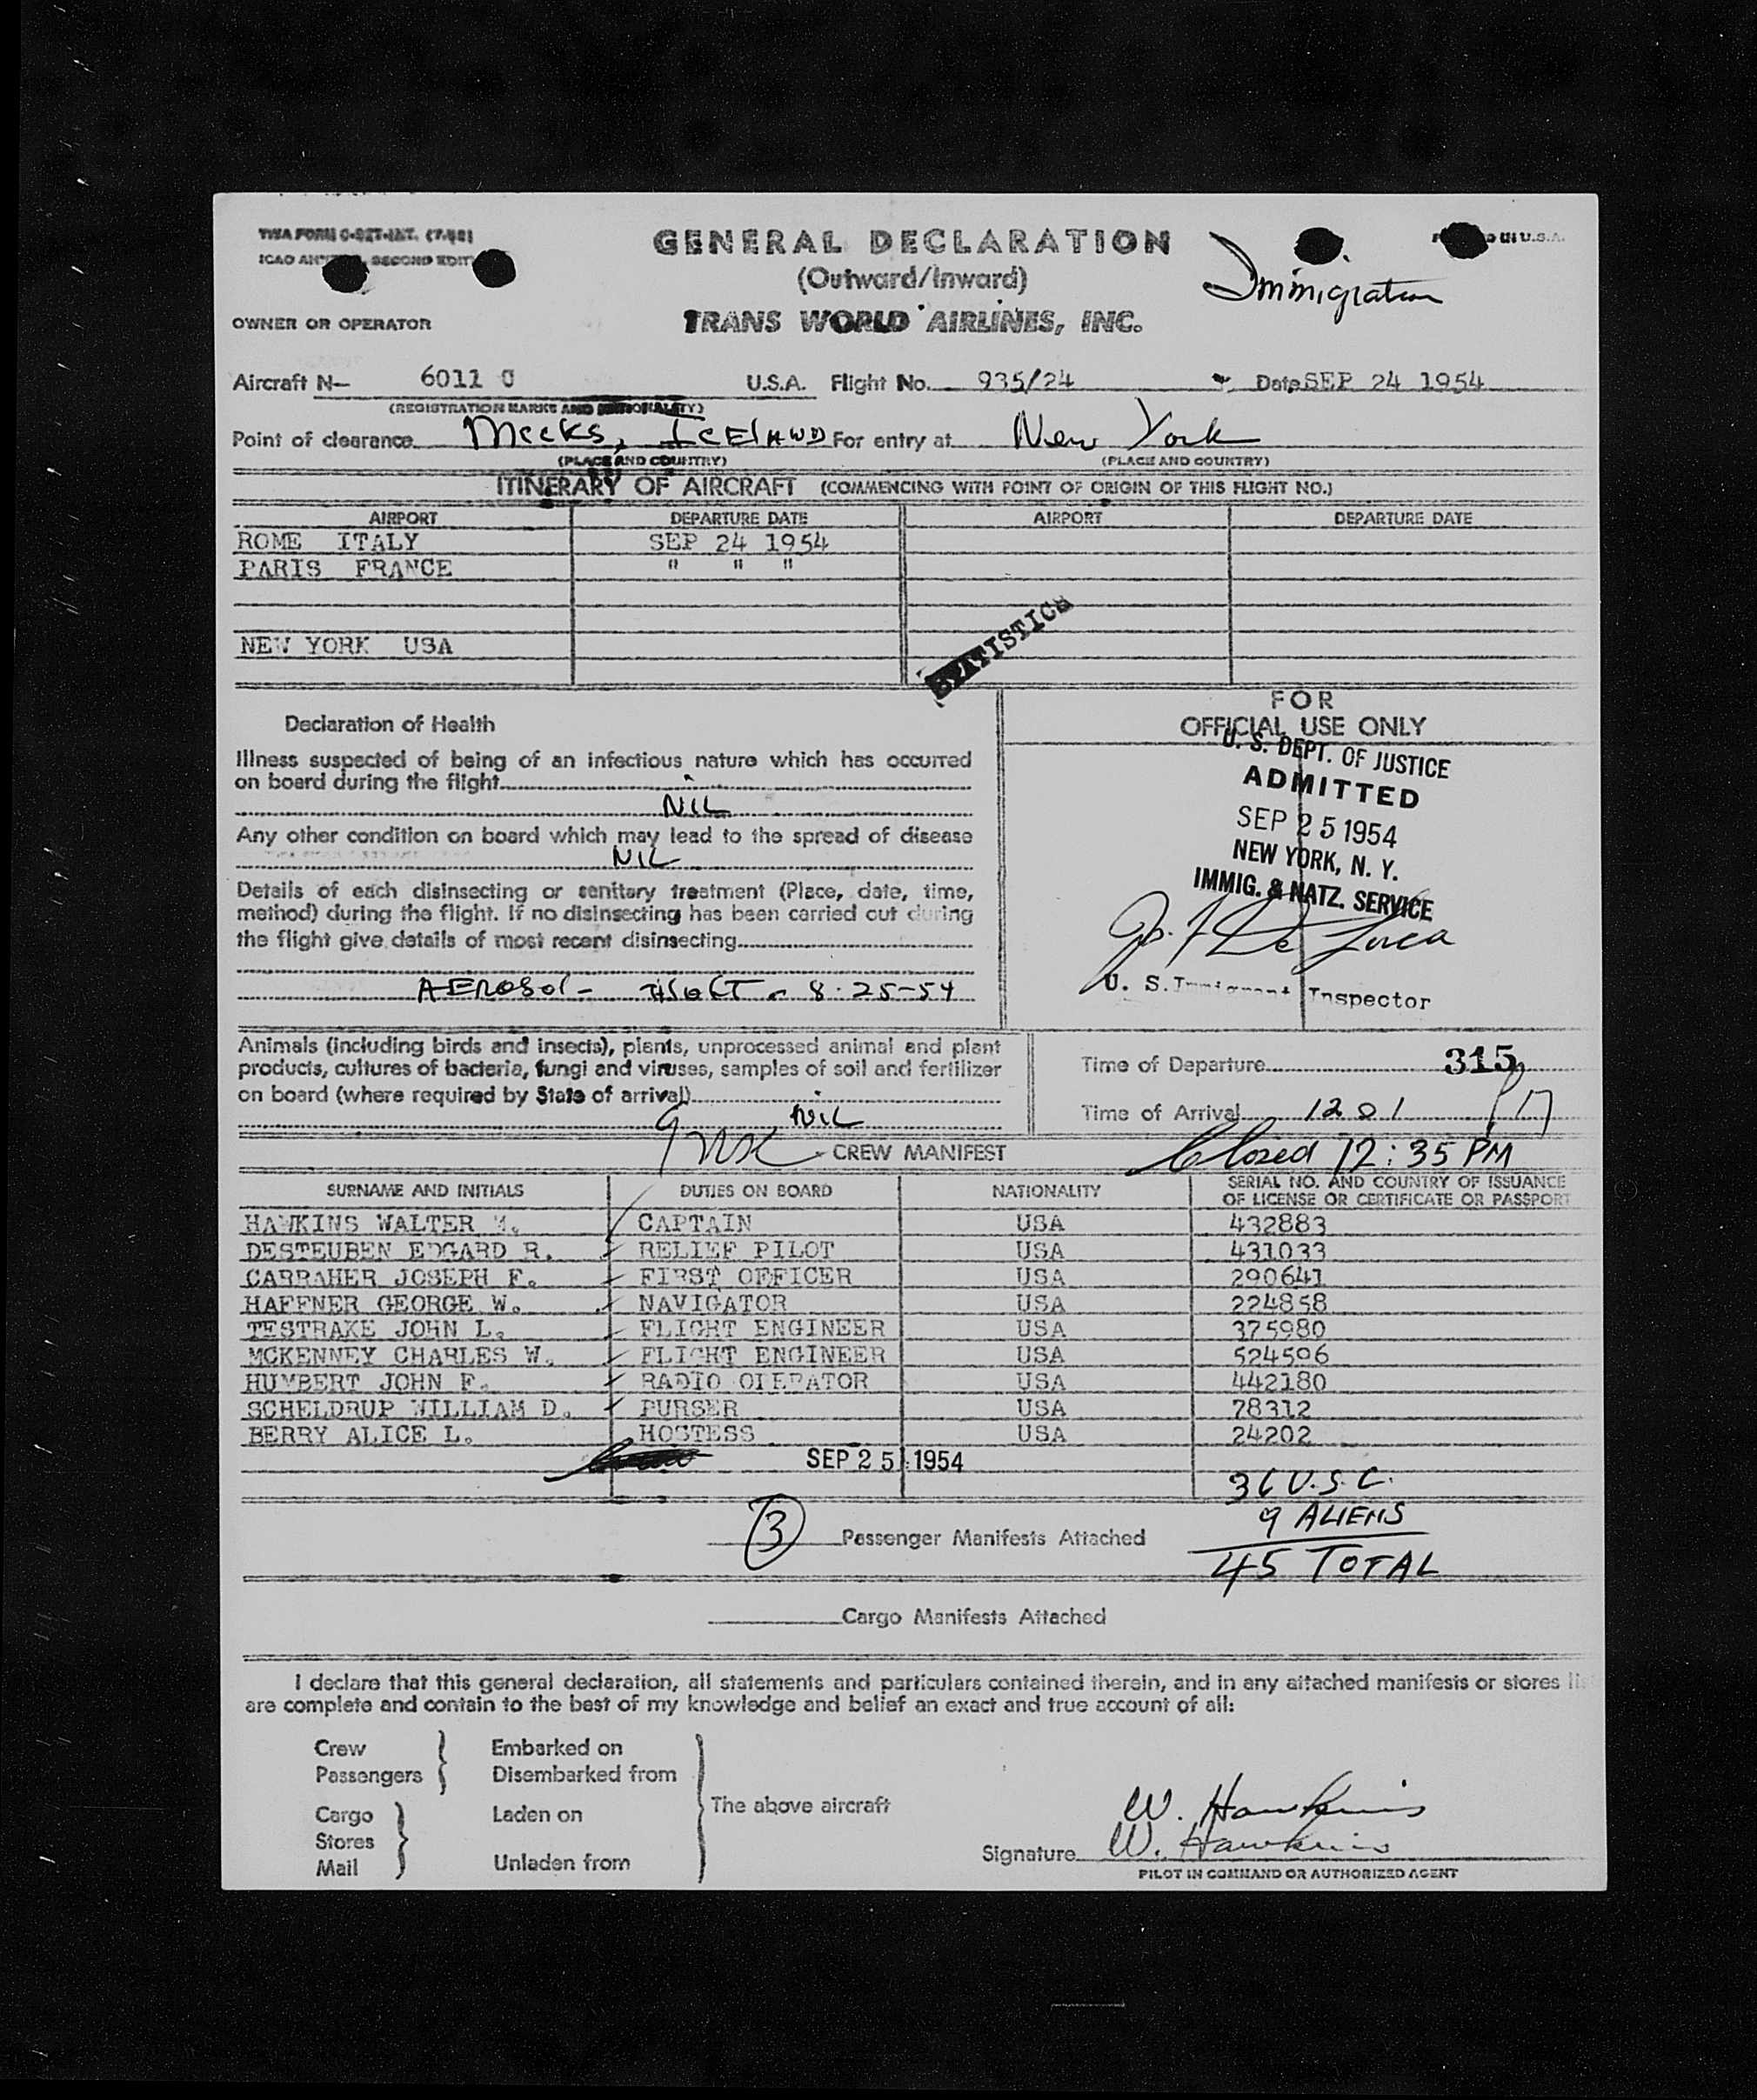 GENERAL DECLARATION
(Outward/Inward)
TRANS WORLD AIRLINES, INC.
Immigration
OWNER OR OPERATOR
Aircraft N— 6011 C U.S.A. Flight No. 935/24 Date SEP 24 1954
(REGISTRATION MARKS AND NATIONALITY)
Point of clearance Meeks, IcElAND For entry at New York
(PLACE AND COUNTRY) (PLACE AND COUNTRY)
ITINERARY OF AIRCRAFT (COMMENCING WITH POINT OF ORIGIN OF THIS FLIGHT NO.)
AIRPORT DEPARTURE DATE AIRPORT DEPARTURE DATE
ROME ITALY SEP 24 1954
PARIS FRANCE " " "
NEW YORK USA
STATISTICS
Declaration of Health
Illness suspected of being of an infectious nature which has occurred
on board during the flight
NIL
Any other condition on board which may lead to the spread of disease
NIL
Details of each disinsecting or sanitary treatment (Place, date, time,
method) during the flight. If no disinsecting has been carried out during
the flight give details of most recent disinsecting
AEROSOL - 8-25-54
FOR
OFFICIAL USE ONLY
U. S. DEPT. OF JUSTICE
ADMITTED
SEP 25 1954
NEW YORK, N. Y.
IMMIG. & NATZ. SERVICE
De Luca
U. S. Immigrant Inspector
Animals (including birds and insects), plants, unprocessed animal and plant
products, cultures of bacteria, fungi and viruses, samples of soil and fertilizer
on board (where required by State of arrival)
NIL
Time of Departure 315
Time of Arrival 1201
CREW MANIFEST
Closed 12:35 PM
SURNAME AND INITIALS DUTIES ON BOARD NATIONALITY SERIAL NO. AND COUNTRY OF ISSUANCE
OF LICENSE OR CERTIFICATE OR PASSPORT
HAWKINS WALTER M. CAPTAIN USA 432883
DESTEUBEN EDGARD R. RELIEF PILOT USA 431033
CARRAHER JOSEPH F. FIRST OFFICER USA 290641
HAFFNER GEORGE W. NAVIGATOR USA 224858
TESTRAKE JOHN L. FLIGHT ENGINEER USA 375980
MCKENNEY CHARLES W. FLIGHT ENGINEER USA 524506
HUMBERT JOHN F. RADIO OPERATOR USA 442180
SCHELDRUP WILLIAM D. PURSER USA 78312
BERRY ALICE L. HOSTESS USA 24202
SEP 25 1954
36 U.S.C.
9 ALIENS
45 TOTAL
3 Passenger Manifests Attached
Cargo Manifests Attached
I declare that this general declaration, all statements and particulars contained therein, and in any attached manifests or stores
are complete and contain to the best of my knowledge and belief an exact and true account of all:
Crew Embarked on
Passengers Disembarked from
Cargo Laden on The above aircraft
Stores
Mail Unladen from
W. Hawkins
Signature W. Hawkins
PILOT IN COMMAND OR AUTHORIZED AGENT